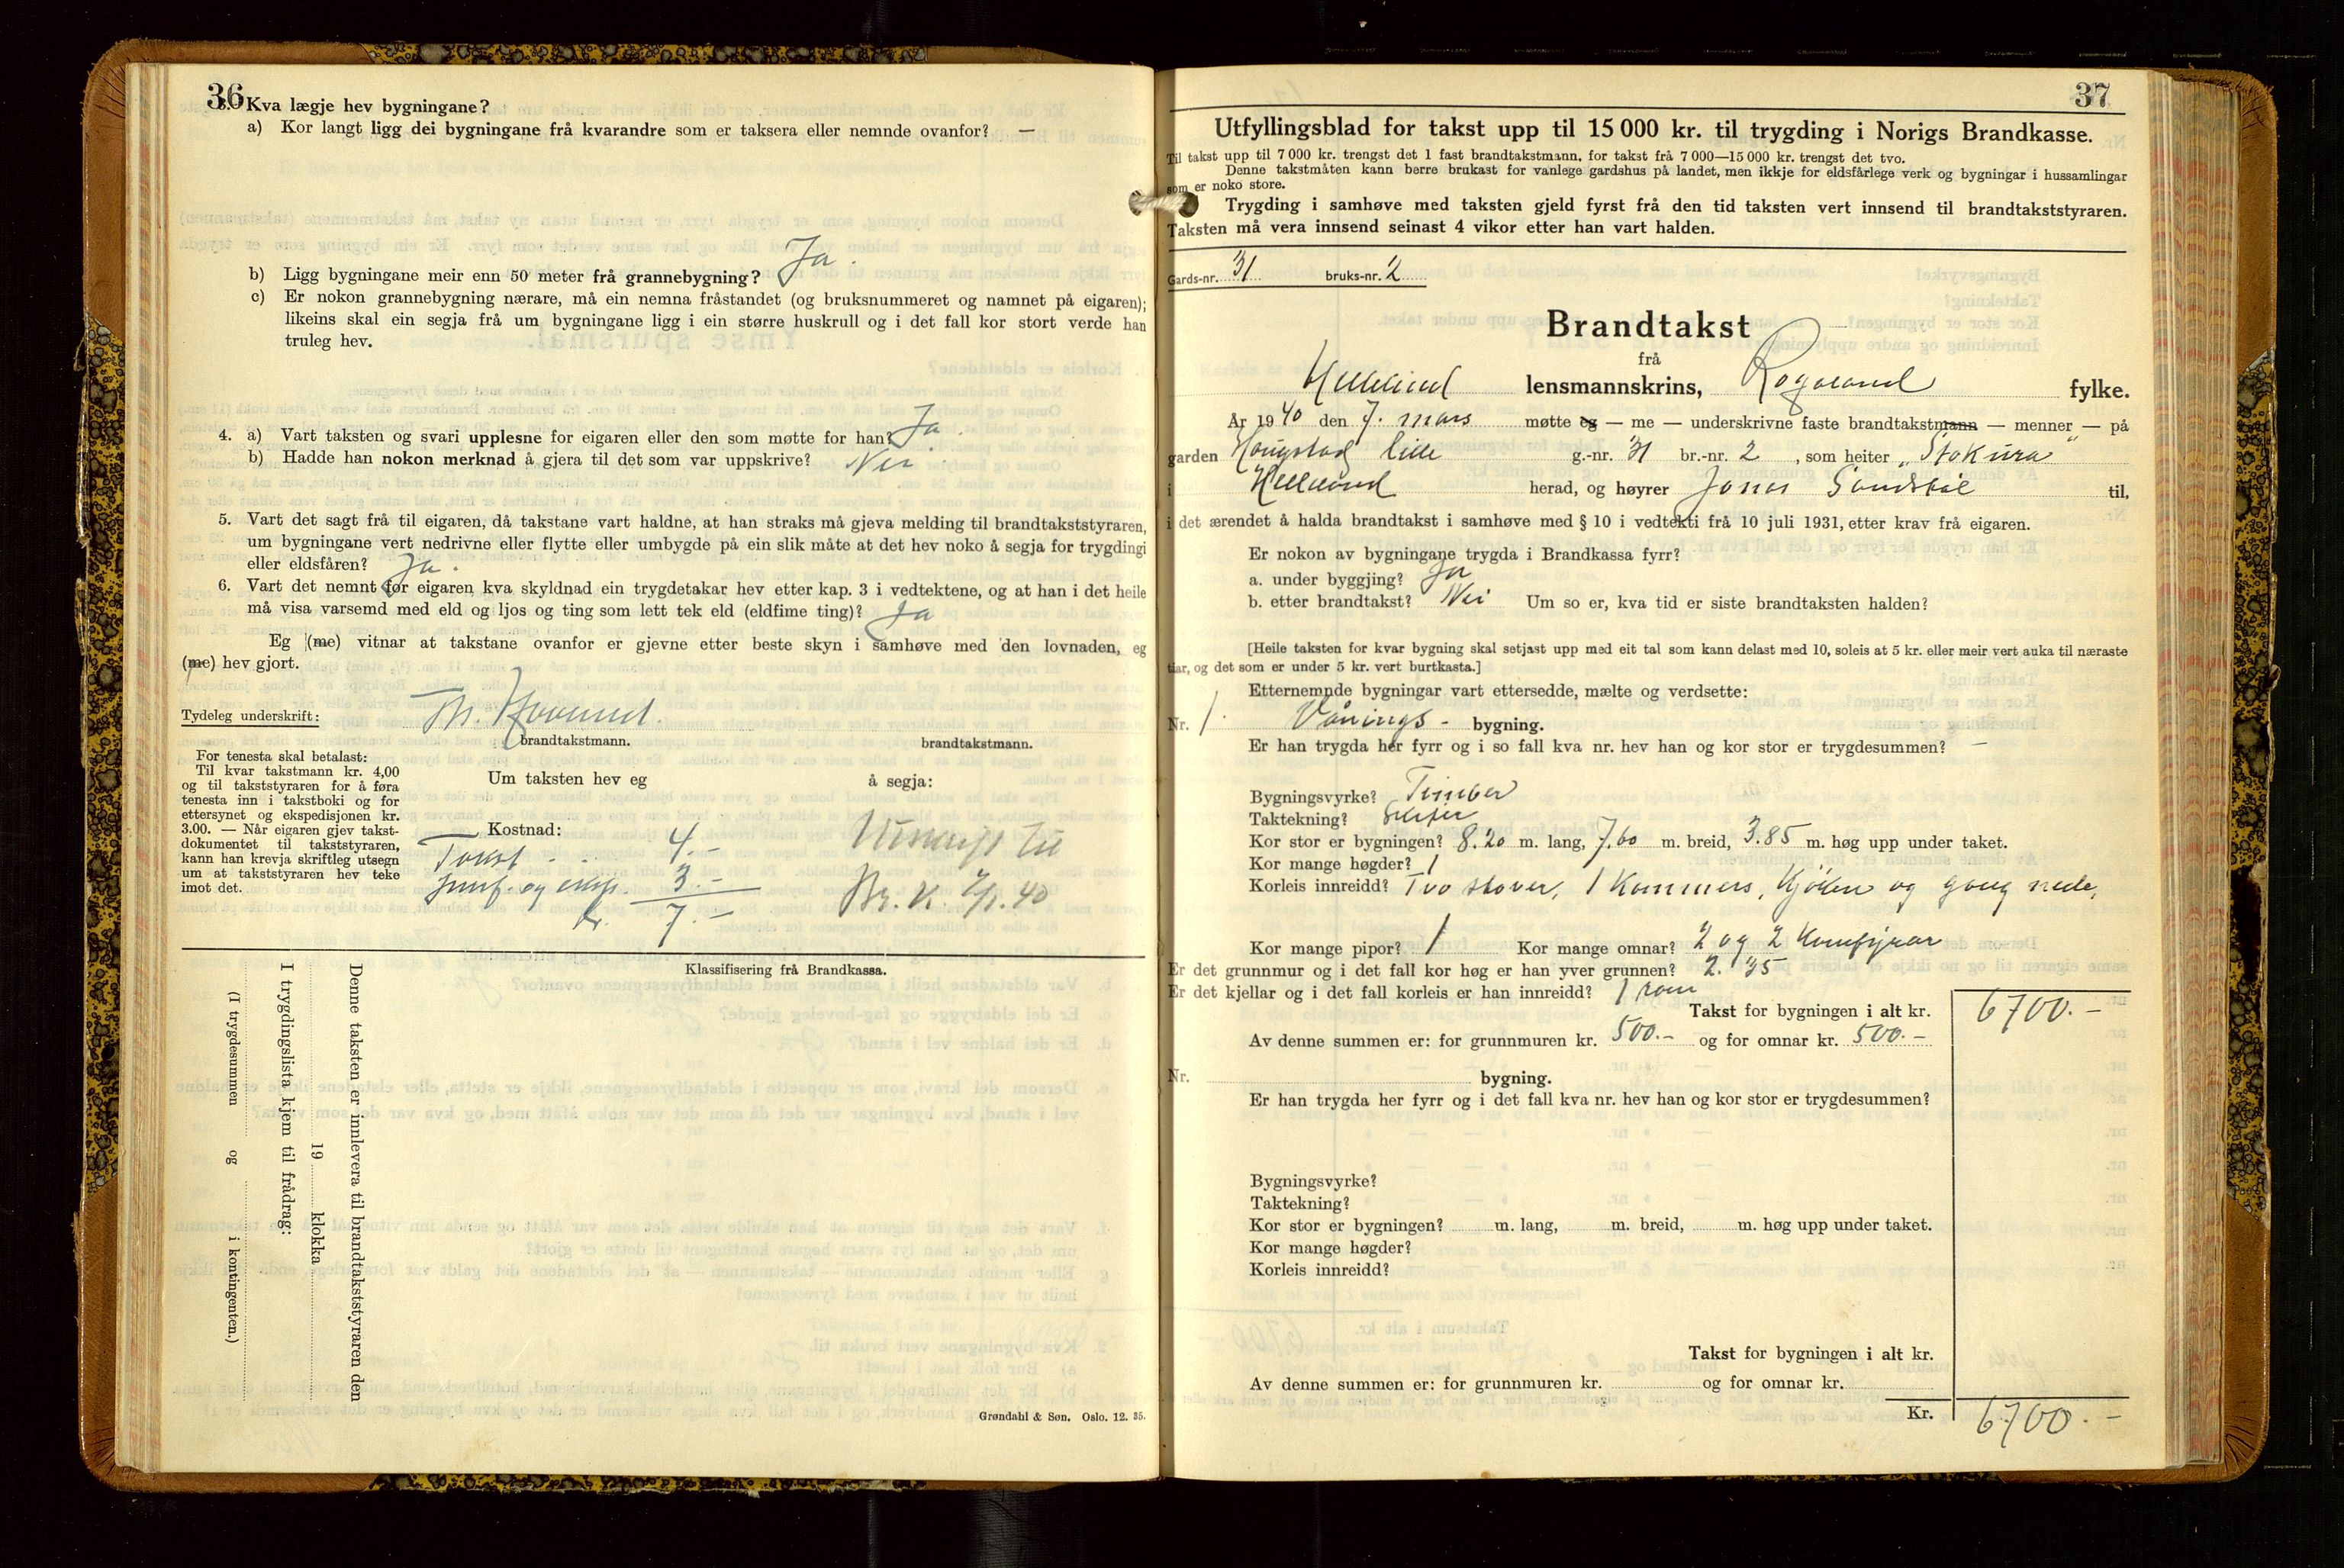 36
3. Kva lægje hev bygningane?
a) Kor langt ligg dei bygningane frå kvarandre som er taksera eller nemnde ovanfor? —
b) Ligg bygningane meir enn 50 meter frå grannebygning? Ja.
c) Er nokon grannebygning nærare, må ein nemna fråstandet (og bruksnummeret og namnet på eigaren);
likeins skal ein segja frå um bygningane ligg i ein større huskrull og i det fall kor stort verde han
truleg hev.
4. a) Vart taksten og svari upplesne for eigaren eller den som møtte for han? Ja.
b) Hadde han nokon merknad å gjera til det som var uppskrive? Nei
5. Vart det sagt frå til eigaren, då takstane vart haldne, at han straks må gjeva melding til brandtakststyraren,
um bygningane vert nedrivne eller flytte eller umbygde på ein slik måte at det hev noko å segja for trygdingi
eller eldsfåren? Ja.
6. Vart det nemnt for eigaren kva skyldnad ein trygdetakar hev etter kap. 3 i vedtektene, og at han i det heile
må visa varsemd med eld og ljos og ting som lett tek eld (eldfime ting)? Ja
Eg (me) vitnar at takstane ovanfor er gjevne etter beste skyn i samhøve med den lovnaden, eg
(me) hev gjort.
Tydeleg underskrift: Th.
brandtakstmann. brandtakstmann.
For tenesta skal betalast:
Til kvar takstmann kr. 4,00
og til takststyraren for å føra
tenesta inn i takstboki og for
ettersynet og ekspedisjonen kr.
3.00. — Når eigaren gjev takst-
dokumentet til takststyraren,
kann han krevja skriftleg utsegn
um at takststyraren hev teke
imot det.
Um taksten hev eg å segja:
Kostnad:
Takst - - 4.-
og eksp. 3.-
kr. 7.-
Utskrift til
Br. K. 40
Klassifisering frå Brandkassa.
Denne taksten er innlevera til brandtakststyraren den
19 klokka
I trygdingslista kjem til frådrag:
(I trygdesummen og i kontingenten.)
Grøndahl & Søn. Oslo. 12. 35.
37
Utfyllingsblad for takst upp til 15 000 kr. til trygding i Norigs Brandkasse.
Til takst upp til 7 000 kr. trengst det 1 fast brandtakstmann, for takst frå 7 000—15 000 kr. trengst det tvo.
Denne takstmåten kann berre brukast for vanlege gardshus på landet, men ikkje for eldsfårlege verk og bygningar i hussamlingar
som er noko store.
Trygding i samhøve med taksten gjeld fyrst frå den tid taksten vert innsend til brandtakststyraren.
Taksten må vera innsend seinast 4 vikor etter han vart halden.
Gards-nr. 31 bruks-nr. 2
Brandtakst
frå
Helleland lensmannskrins, Rogaland fylke.
År 1940 den 7. mars møtte eg — me — underskrivne faste brandtakstmann — menner — på
garden Haugstad lille g.-nr. 31 br.-nr. 2, som heiter „Stokura"
i Helleland herad, og høyrer Jonas til,
i det ærendet å halda brandtakst i samhøve med § 10 i vedtekti frå 10 juli 1931, etter krav frå eigaren.
Er nokon av bygningane trygda i Brandkassa fyrr?
a. under byggjing? Ja
b. etter brandtakst? Nei Um so er, kva tid er siste brandtaksten halden?
[Heile taksten for kvar bygning skal setjast upp med eit tal som kann delast med 10, soleis at 5 kr. eller meir vert auka til næraste
tiar, og det som er under 5 kr. vert burtkasta.]
Etternemnde bygningar vart ettersedde, mælte og verdsette:
Nr. 1. Vånings- bygning.
Er han trygda her fyrr og i so fall kva nr. hev han og kor stor er trygdesummen? —
Bygningsvyrke? Timber
Taktekning? Skifer
Kor stor er bygningen? 8.20 m. lang, 7.60 m. breid, 3.85 m. høg upp under taket.
Kor mange høgder? 1
Korleis innreidd? Tvo stover, 1 Kammers, Kjøken og gang nede,
Kor mange pipor? 1 Kor mange omnar? 2 og 2 Komfyrar
Er det grunnmur og i det fall kor høg er han yver grunnen? 2.35
Er det kjellar og i det fall korleis er han innreidd? 1 rom
Takst for bygningen i alt kr. 6700.-
Av denne summen er: for grunnmuren kr. 500.- og for omnar kr. 500.-
Nr. bygning.
Er han trygda her fyrr og i det fall kva nr. hev han og kor stor er trygdesummen?
Bygningsvyrke?
Taktekning?
Kor stor er bygningen? m. lang, m. breid, m. høg upp under taket.
Kor mange høgder?
Korleis innreidd?
Takst for bygningen i alt kr.
Av denne summen er: for grunnmuren kr. og for omnar kr.
Kr. 6700.-